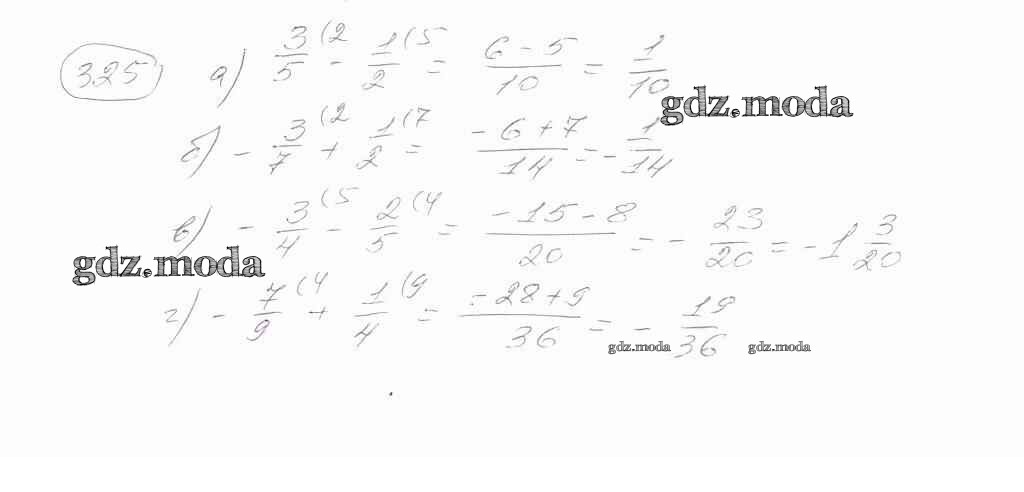 325 а) 3/5 (2 - 1/2 (5 = 6-5/10 = 1/10
gdz.moda
б) - 3/7 (2 + 1/2 (7 = -6+7/14 = - 1/14
в) - 3/4 (5 - 2/5 (4 = -15-8/20 = - 23/20 = -1 3/20
gdz.moda
г) - 7/9 (4 + 1/4 (9 = -28+9/36 = - 19/36
gdz.moda gdz.moda